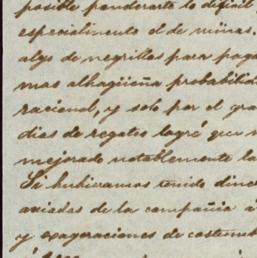 posible ponderarte lo dificil
especialmente el de minas.
algo de negrillas para paga
mas alhagüeña probabilid
racional, y solo por el gra
dias de regateo logré que
mejorado notablemente la
Si hubieramos tenido dine
aviadas de la compañia á
y exageraciones de costumb